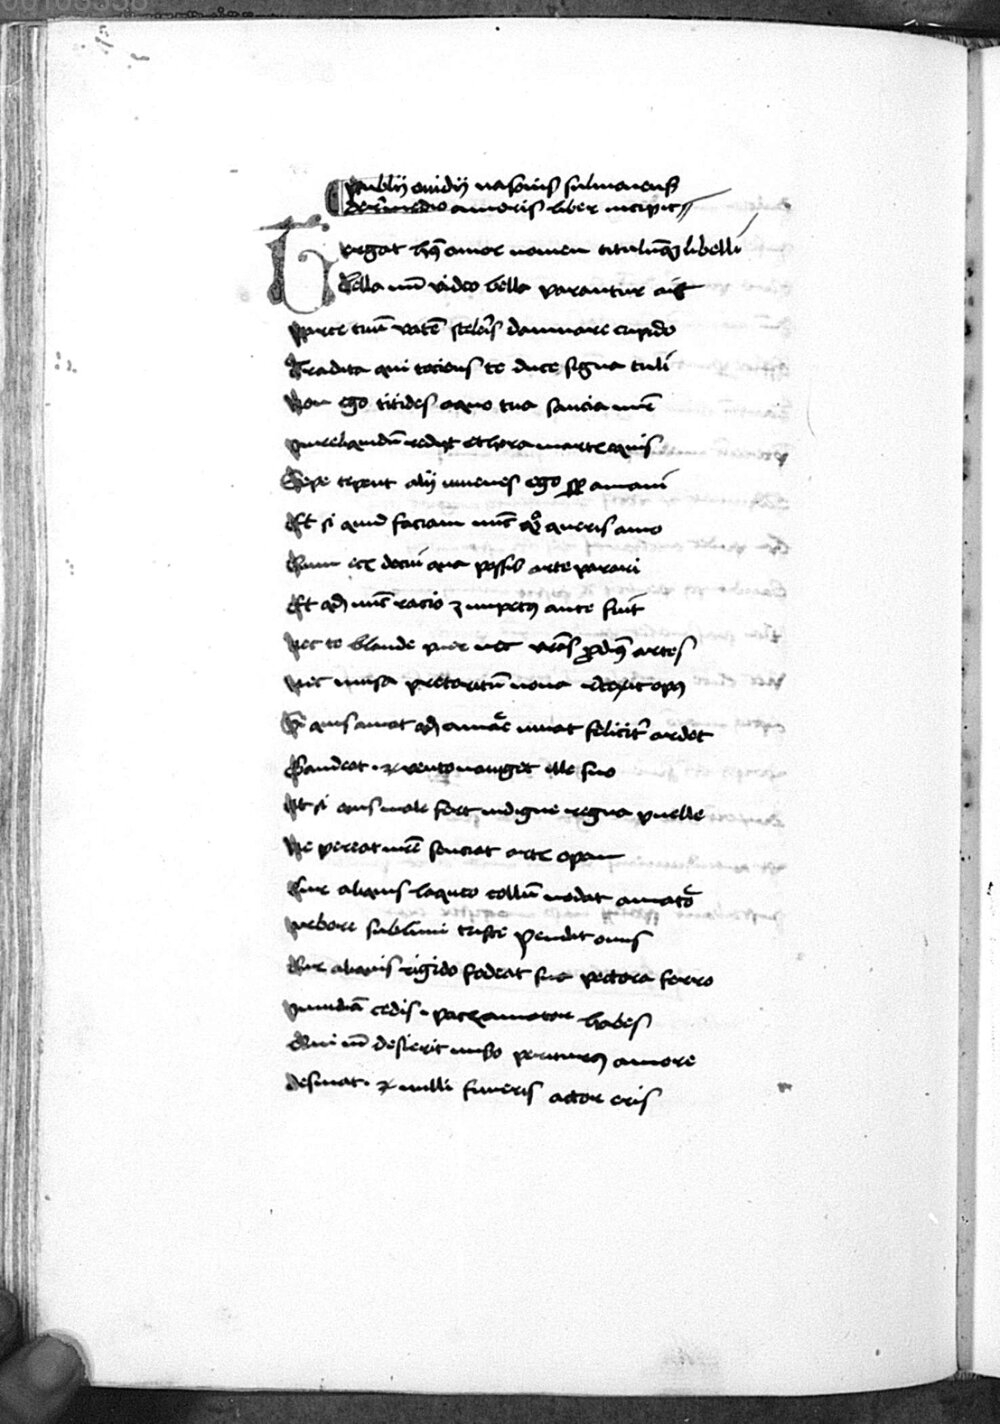 publij ovidij nasonis sulmonensis
de remedio amoris liber incipit
Legat huius amor nomen titulumque libelli
Bella mihi video bella parantur ait
Parce tuum vatem sceleris damnare cupido
Tradita qui tociens te duce signa tuli
Non ego titides a quo tua saucia mater
in rediit ethera martis equis
Sepe tepent alij iuvenes ego semper amavi
Et si quid faciam nunc quoque queris amo
Quin eciam docui qua possis arte parari
Et quod nunc racio est impetus ante fuit
Nec te blande puer nec nostras prodimus artes
Nec nova preteritum musa retexit opus
Si quis amat quod amare iuvat feliciter ardet
Gaudeat et vento naviget ille suo
At si quis male fert indigne regna puelle
Ne pereat nostre senciat artis opem
Cur aliquis laqueo collum nodat amator
arbore sublimi triste pendit onus
Cur aliquis rigido fodeat sua pectora ferro
invidiam cedis pacis amator habes
Qui nisi desierit misero periturus amore
desinat et nulli funeris actor eris